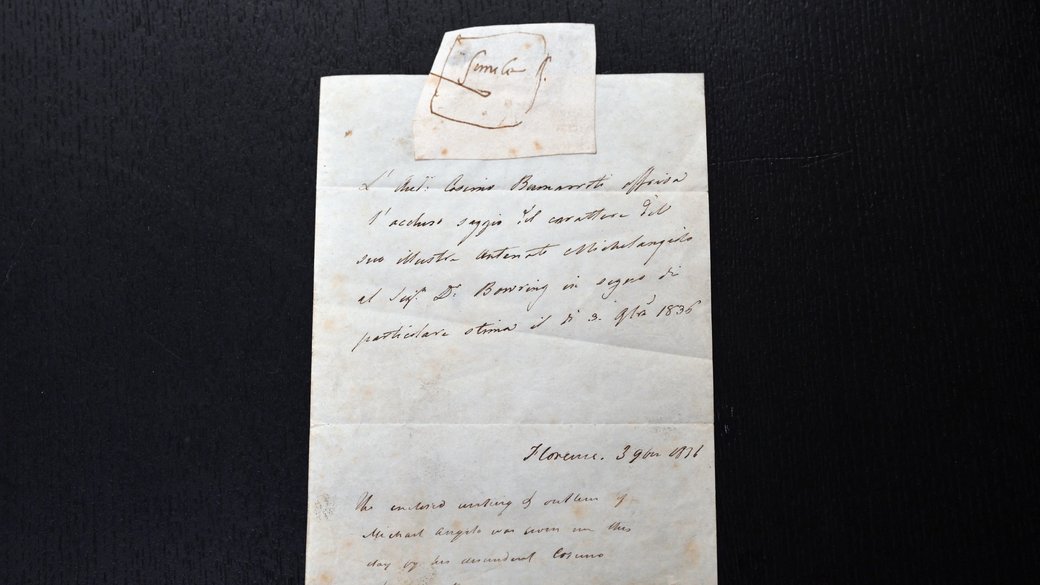 Simile
L' Avd. Cosimo Buonarroti offriva
l' accluso saggio del carattere del
suo illustre Antenato Michelangiolo
al Sigr. Dr. Bowring in segno di
particolare stima il dì 3. 9bre 1836
Florence. 3 9bre 1836
The enclosed writing & outline of
Michael Angelo was given me this
day by his descendent Cosimo